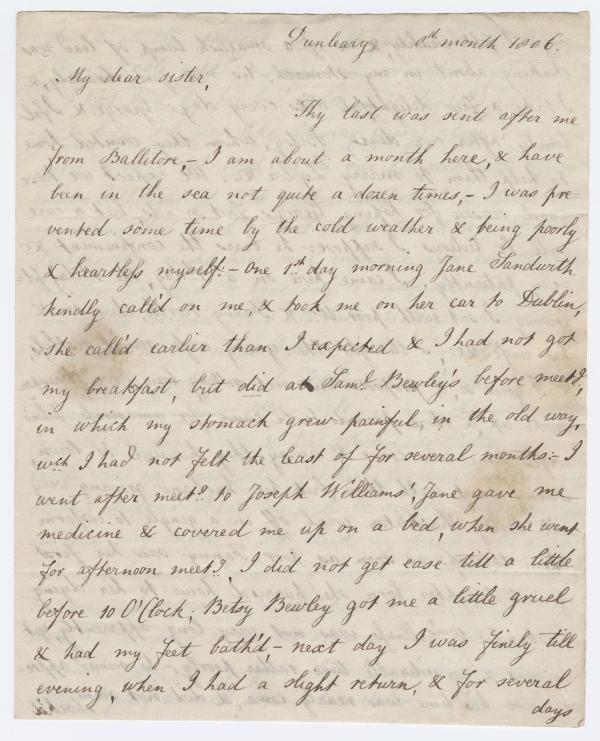 Dunleary 8th month 1806.
My dear sister,
Thy last was sent after me
from Ballitore, - I am about a month here, & have
been in the sea not quite a dozen times, - I was pre-
vented some time by the cold weather & being poorly
& heartless myself: - one 1st day morning Jane Sandwith
kindly call'd on me, & took me on her car to Dublin,
she call'd earlier than I expected & I had not got
my breakfast, but did at Saml. Bewley's before meetg,
in which my stomach grew painful in the old way,
wch I had not felt the least of for several months: - I
went after meetg to Joseph Williams', Jane gave me
medicine & covered me up on a bed, when she went
for afternoon meetg, I did not get ease till a little
before 10 O'Clock, Betsy Bewley got me a little gruel
& had my feet bath'd, - next day I was finely till
evening, when I had a slight return, & for several
days